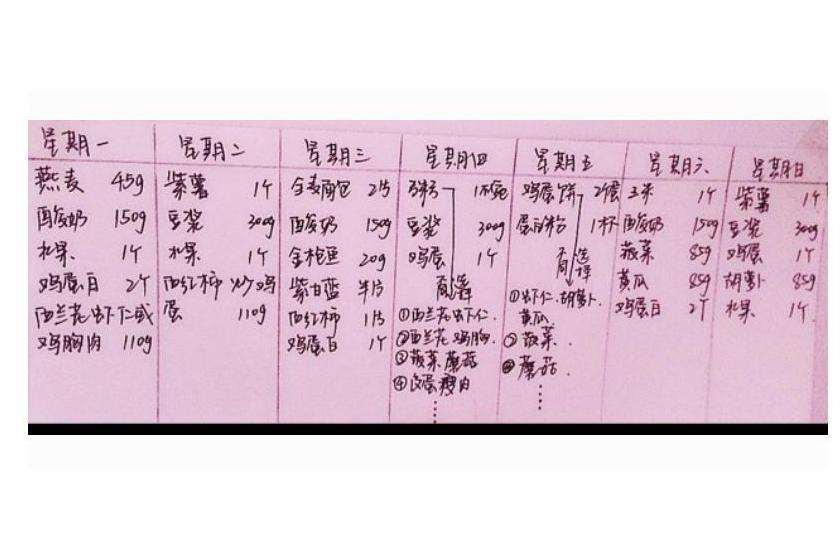 星期一
燕麦 45g
酸奶 150g
水果 1个
鸡蛋白 2个
西兰花虾仁或
鸡胸肉 110g
星期二
紫薯 1个
豆浆 300g
水果 1个
西红柿炒鸡
蛋 110g
星期三
全麦面包 2片
酸奶 150g
金枪鱼 20g
紫甘蓝 半片
西红柿 1片
鸡蛋白 1个
星期四
1小碗
豆浆 300g
鸡蛋 1个
有选择
①西兰花虾仁.
②西兰花鸡胸.
③菠菜蘑菇
④皮蛋瘦肉
⋮
星期五
鸡蛋饼 2个蛋
蛋白粉 1杯
有选择
①虾仁.胡萝卜.
黄瓜.
②菠菜.
③蘑菇.
⋮
星期六
玉米 1个
酸奶 150g
菠菜 85g
黄瓜 85g
鸡蛋白 2个
星期日
紫薯 1个
豆浆 300g
鸡蛋 1个
胡萝卜 85g
水果 1个.